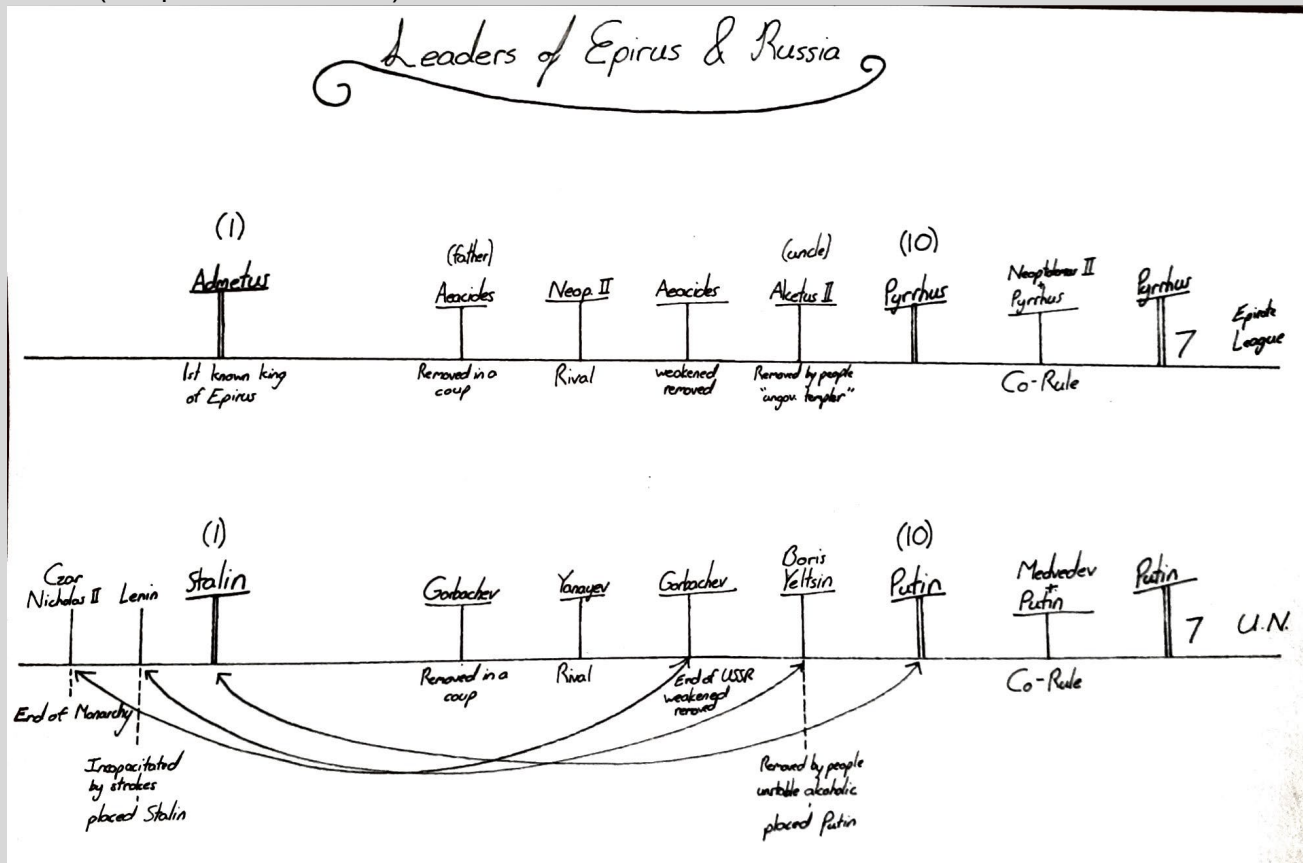 Leaders of Epirus & Russia
(1)
Admetus
1st known king
of Epirus
(father)
Aeacides
Removed in a
coup
Neop. II
Rival
Aeacides
weakened
removed
(uncle)
Alcetus II
Removed by people
"ungov. temper"
(10)
Pyrrhus
Neoptolemus II
+
Pyrrhus
Co-Rule
Pyrrhus
7
Epirote
League
Czar
Nicholas II
End of Monarchy
Lenin
Incapacitated
by strokes
placed Stalin
(1)
Stalin
Gorbachev
Removed in a
coup
Yanayev
Rival
Gorbachev
End of USSR
weakened
removed
Boris
Yeltsin
Removed by people
unstable alcoholic
placed Putin
(10)
Putin
Medvedev
+
Putin
Co-Rule
Putin
7
U.N.